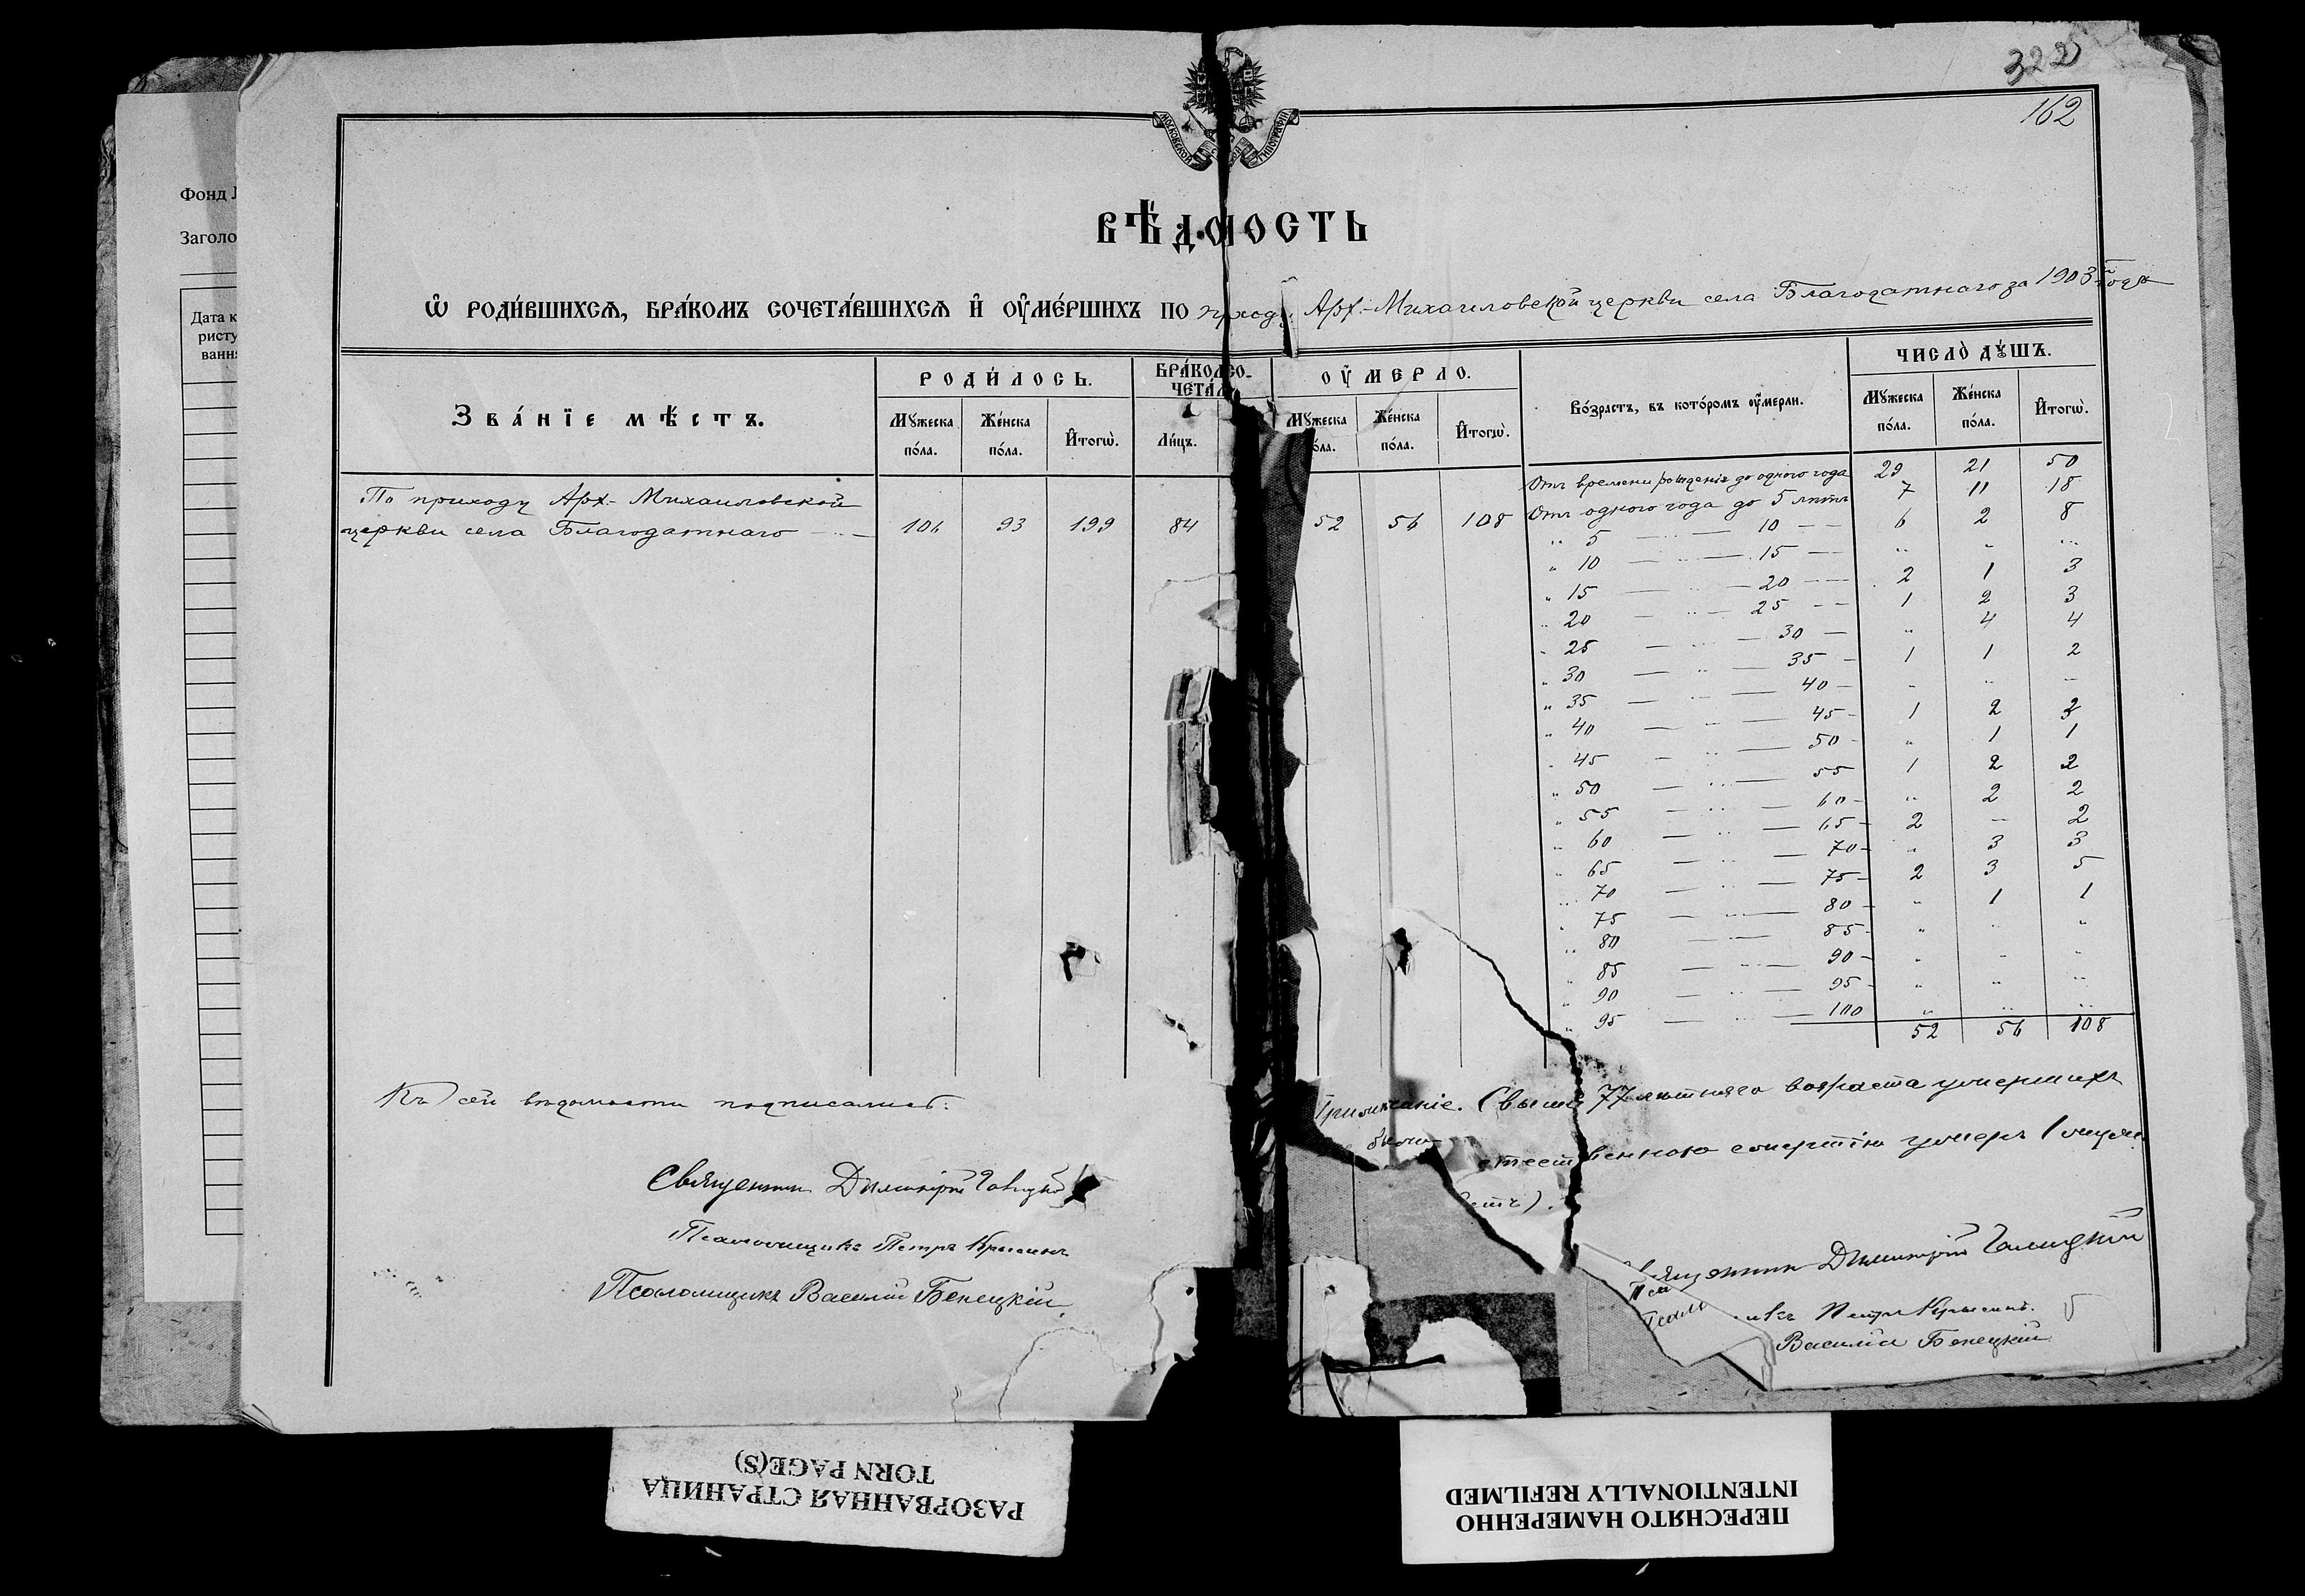 322
162
МОСКОВСКОЙ ТИПОГРАФІИ
Фонд
Заголо
Дата к
ристу
ванн
ВѢДОМОСТЬ
Ѡ РОДИ́ВШИХСѦ, БРА́КОМЪ СОЧЕТА́ВШИХСѦ И҆ ОУ҆МЕ́РШИХЪ ПО приходу Арх.-Михаиловской церкви села Благодатнаго за 1903 года
Зва́нїе мѣ́стъ.
РОДИ́ЛОСЬ.
БРА́КОМЪ СО-
ЧЕТА́Л
ОУ҆МЕРЛО.
Во́зрастъ, въ кото́ромъ оу҆мерли.
ЧИСЛО̀ ДꙊ́ШЪ.
Мꙋ́жеска по́ла. Же́нска по́ла. И҆тогѡ̀. Ли́цъ. Мꙋ́жеска по́ла. Же́нска по́ла. И҆тогѡ̀. Мꙋ́жеска по́ла. Же́нска по́ла. И҆тогѡ̀.
По приходу Арх.- Михаиловской
церкви села Благодатнаго 106 93 199 84 52 56 108
Отъ времени рожденія до одного года 29 21 50
Отъ одного года до 5 лѣтъ 7 11 18
" 5 — " — 10 — 6 2 8
" 10 — " — 15 — " " "
" 15 — " — 20 — 2 1 3
" 20 — " — 25 — 1 2 3
" 25 — " — 30 — " 4 4
" 30 — " — 35 — 1 1 2
" 35 — " — 40 — " " "
" 40 — " — 45 — 1 2 3
" 45 — " — 50 — " 1 1
" 50 — " — 55 — 1 2 2
" 55 — " — 60 — " 2 2
" 60 — " — 65 — 2 — 2
" 65 — " — 70 — " 3 3
" 70 — " — 75 — 2 3 5
" 75 — " — 80 — " 1 1
" 80 — " — 85 — " " "
" 85 — " — 90 — " " "
" 90 — " — 95 — " " "
" 95 — " — 100 " " "
52 56 108
Къ сей вѣдомости подписались:
Священникъ Димитрій Галицкій
Псаломщикъ Петръ Крысинъ
Псаломщикъ Василій Бенецкій
Примѣчаніе. (Свыше 77 лѣтняго возраста умершихъ
было
естественною смертію умеръ 1
лѣтъ).
Священникъ Димитрій Галицкій
Пса
Псало
икъ Петръ Крысинъ.
Василій Бенецкій
РАЗОРВАННАЯ СТРАНИЦА
TORN PAGE(S)
ПЕРЕСНЯТО НАМЕРЕННО
INTENTIONALLY REFILMED